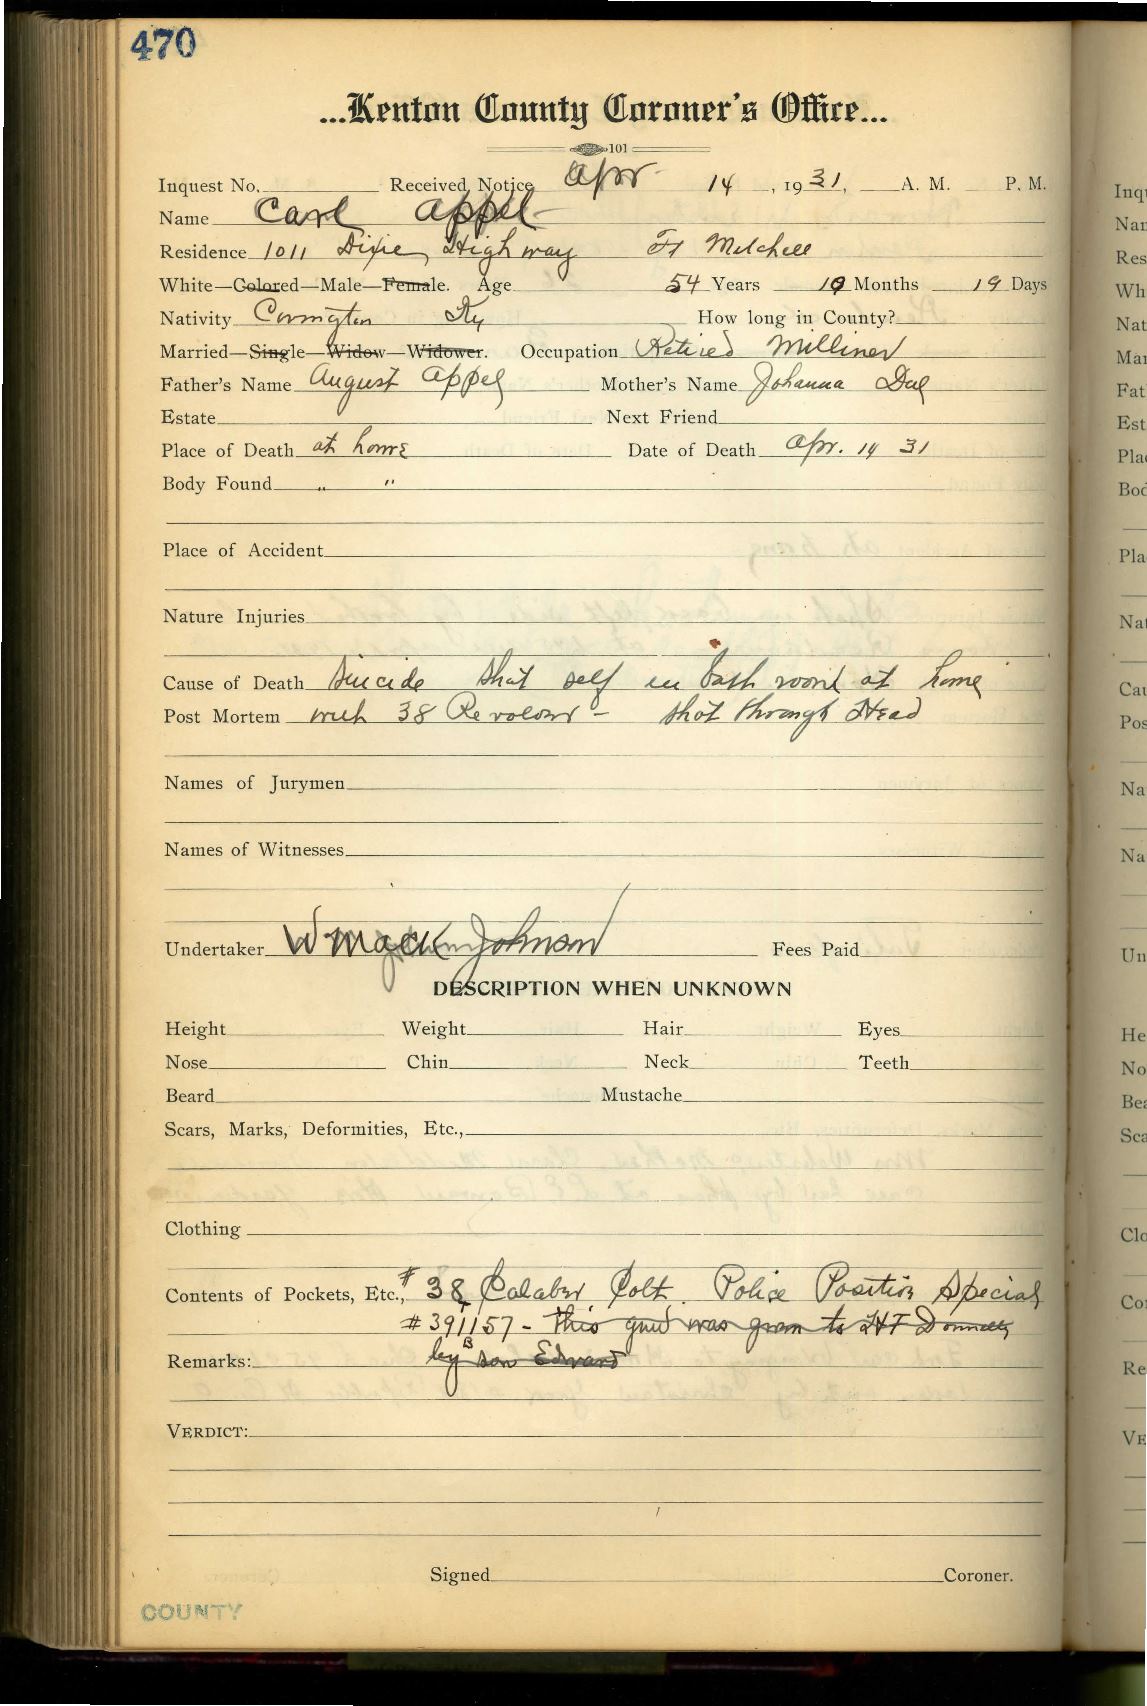 470
...Kenton County Coroner's Office...
101
Inquest No. Received Notice Apr 14, 1931, A. M. P. M.
Name Carl Appel
Residence 1011 Dixie Highway Ft Mitchell
White—Colored—Male—Female. Age 54 Years 10 Months 19 Days
Nativity Covington Ky How long in County?
Married—Single—Widow—Widower. Occupation Retired Milliner
Father's Name August Appel Mother's Name Johanna
Estate Next Friend
Place of Death at home Date of Death Apr. 14 31
Body Found " "
Place of Accident
Nature Injuries
Cause of Death Suicide shot self in bath room at home
Post Mortem with 38 Revolver - shot through Head
Names of Jurymen
Names of Witnesses
Undertaker W Mack Johnson Fees Paid
DESCRIPTION WHEN UNKNOWN
Height Weight Hair Eyes
Nose Chin Neck Teeth
Beard Mustache
Scars, Marks, Deformities, Etc.,
Clothing
Contents of Pockets, Etc., # 38 Calaber Colt. Police Positive Special
#391157 - This gun was given to HF Donnelly
Remarks: by son Edward
VERDICT:
Signed Coroner.
COUNTY
Inqu
Nam
Res
Wh
Nat
Mar
Fat
Est
Plac
Bod
Pla
Nat
Cau
Pos
Na
Na
Un
He
No
Bea
Sca
Clo
Con
Re
VE